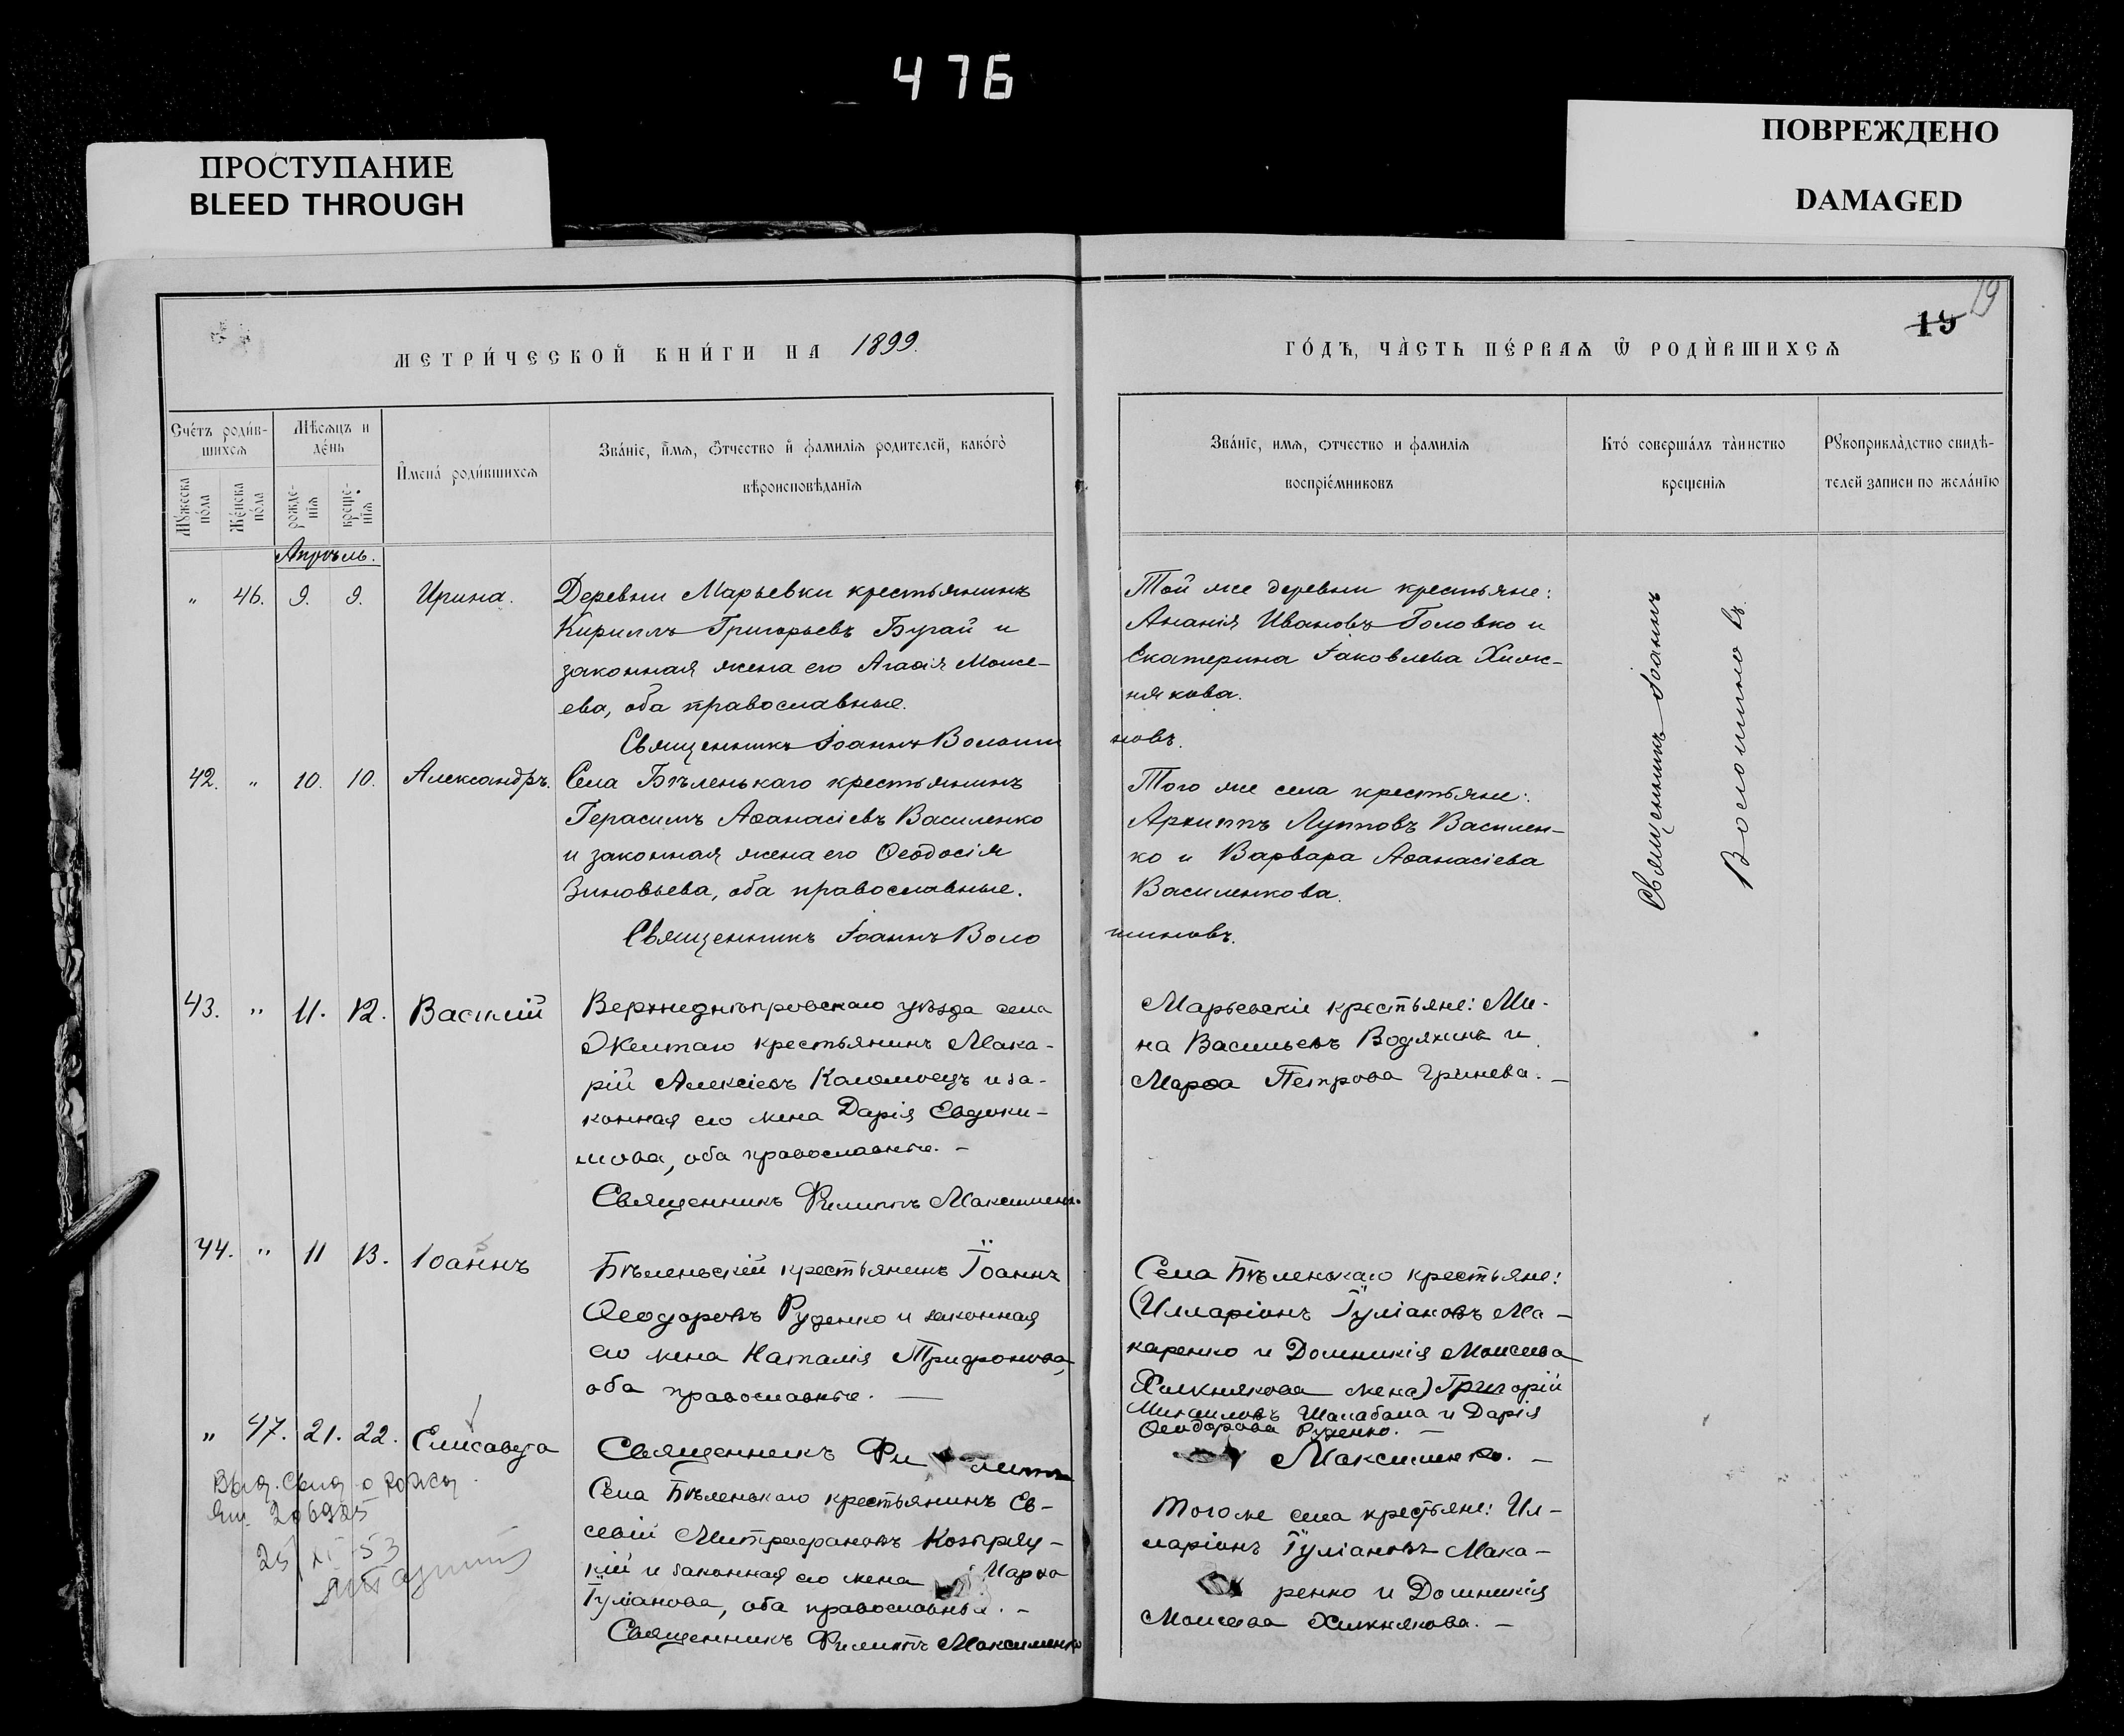 476
ПРОСТУПАНИЕ
BLEED THROUGH
ПОВРЕЖДЕНО
DAMAGED
19
15
МЕТРИ́ЧЕСКОЙ КНИ́ГИ НА 1899.
ГО́ДЪ, ЧА̀СТЬ ПЕ́РВАѦ Ѿ РОДЍВШИХСѦ
Сче́тъ роди́в-
шихсѧ
Мѣ́сѧцъ и
де́нь
Мꙋ́жеска
по́ла
Же́нска
по́ла
рожде-
нїѧ
креще-
нїѧ
И҆мена̀ роди́вшихсѧ
Зва́нїе, и҆́мѧ, ѻ҆́тчество и҆ фамилїѧ родителей, како́гѡ
вѣроисповѣ́данїѧ
Зва́нїе, имѧ, ѻтчество и фамилїѧ
воспрїе́мниковъ
Кто́ соверша́лъ та̀инство
крещенїѧ
Рꙋкоприкла̀дство свидѣ́-
телей записи по жела́нїю
Апрѣль.
„ 46. 9. 9. Ирина.
Деревни Марьевки крестьянинъ
Кириллъ Григорьевъ Бугай и
законная жена его Агаѳія Моисе-
ева, оба православные.
Священникъ Іоаннъ Волоши
Той же деревни крестьяне:
Ананія Ивановъ Головко и
Екатерина Іаковлева Хиж-
някова.
новъ.
Священникъ Іоаннъ
Волошиновъ
42. „ 10. 10. Александръ.
Села Бѣленькаго крестьянинъ
Герасимъ Аѳанасіевъ Василенко
и законная жена его Ѳеодосія
Зиновьева, оба православные.
Священникъ Іоаннъ Воло
Того же села крестьяне:
Архиппъ Лупповъ Василен-
ко и Варвара Аѳанасіева
Василенкова.
шиновъ.
43. „ 11. 12. Василій
Верхнеднѣпровскаго уѣзда села
Желтаго крестьянинъ Мака-
рій Алексіевъ Коломоецъ и за-
конная его жена Дарія Евдоки-
мова, оба православные. –
Священникъ Филиппъ Максименко
Марьевскіе крестьяне: Ми-
на Васильевъ Водяхинъ и
Марѳа Петрова Гринева. –
44. „ 11 13. Іоаннъ
Бѣленьскій крестьянинъ Іоаннъ
Ѳеодоровъ Руденко и законная
его жена Наталія Трифонова,
оба православные. —
Священникъ Фи липпъ
Села Бѣленькаго крестьяне:
(Илларіонъ Іуліановъ Ма-
каренко и Домникія Моисеева
Хижнякова жена) Григорій
Михаиловъ Шалабала и Дарія
Ѳеодорова Руденко. –
Максименко. –
„ 47. 21. 22. Елисавета
Выд. свид о рожд
Ян. 206925
25 XI 53
Села Бѣленькаго крестьянинъ Ев-
севій Митрофановъ
кій и законная его жена Марѳа
Іуліанова, оба православные. –
Священникъ Филиппъ Максименко
Того же села крестьяне: Ил-
ларіонъ Іуліановъ Мака-
ренко и Домникія
Моисеева Хижнякова. –